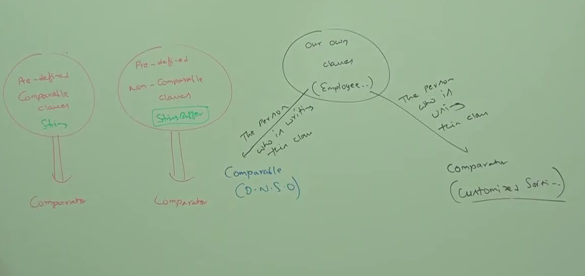 Pre-defined
Comparable
classes
String
Comparator
Pre-defined
non-Comparable
classes
StringBuffer
Comparator
our own
classes
(Employee..)
The person
who is writing
this class
Comparable
(D.N.S.O)
The person
who is
using
this class
Comparator
(Customized Sorti...)